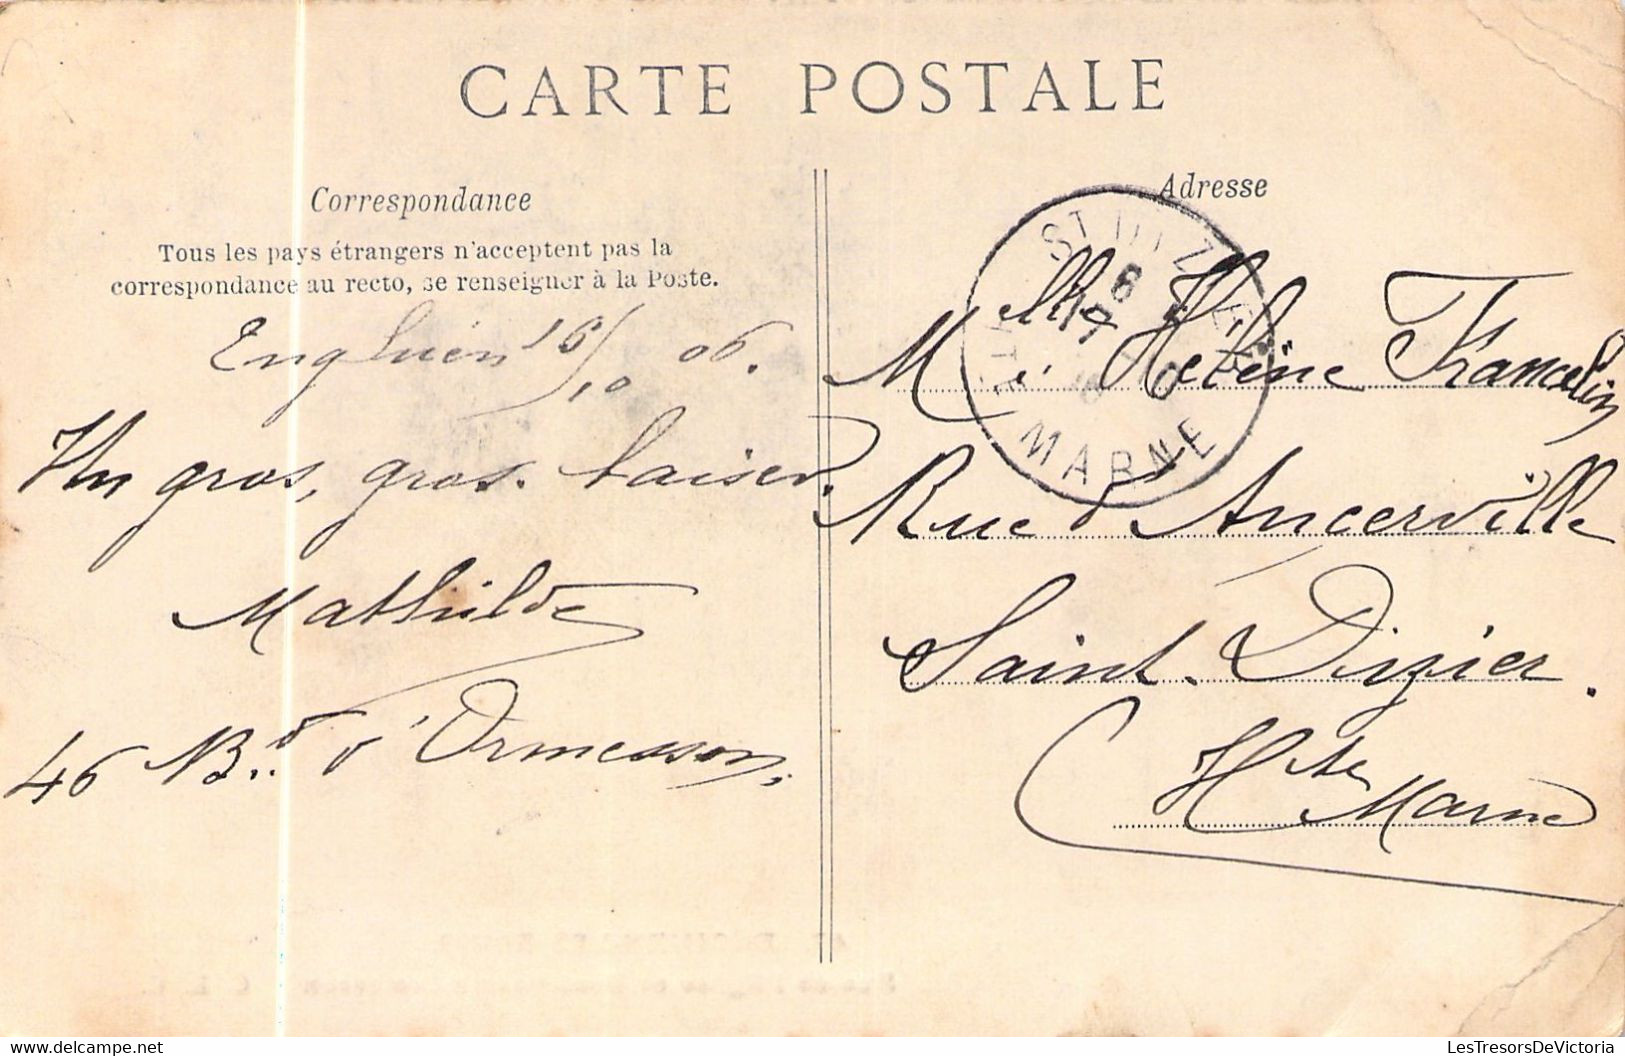 CARTE POSTALE
Correspondance
Tous les pays étrangers n'acceptent pas la
correspondance au recto, se renseigner à la Poste.
Enghien 16/10 06.
Un gros, gros. baiser.
Mathilde
46 B.d d'Ormesson.
Adresse
Melle Hélène Francelin
Rue d'Ancerville
Saint. Dizier.
Hte Marne
ST DIZIER
HTE MARNE
LesTresorsDeVictoria
delcampe.net